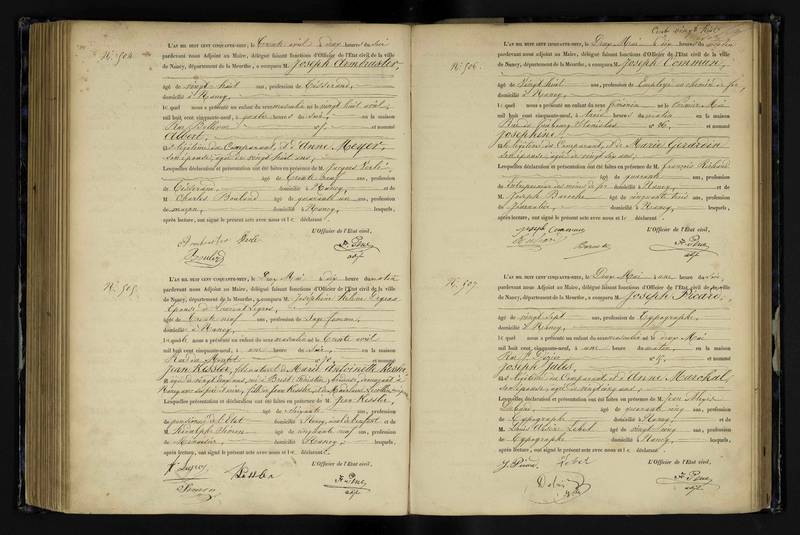 N.° 504.
L'AN MIL HUIT CENT CINQUANTE-NEUF, le Trente avril à deux heures du Soir
pardevant nous Adjoint au Maire, délégué faisant fonctions d'Officier de l'Etat civil de la ville
de Nancy, département de la Meurthe, a comparu M. Joseph Armbruster,
âgé de vingt huit ans, profession de Tisserand,
domicilié à Nancy,
lequel nous a présenté un enfant du sexe masculin né le vingt huit avril,
mil huit cent cinquante-neuf, à quatre heures du Soir, en la maison
Rue Bellevue n.° et nommé
Albert,
fils légitime du Comparant, et d'Anne Meyer,
son épouse, âgée de vingt huit ans,
Lesquelles déclaration et présentation ont été faites en présence de M. Jacques
âgé de Trente neuf ans, profession
de Tisserand, domicilié à Nancy, et de
M. Charles Boulind âgé de quarante un ans, profession
de maçon, domicilié à Nancy, lesquels,
après lecture, ont signé le présent acte avec nous et le déclarant.
L'Officier de l'Etat civil,
adj.
N.° 505.
L'AN MIL HUIT CENT CINQUANTE-NEUF, le Deux Mai à dix heures du matin
pardevant nous Adjoint au Maire, délégué faisant fonctions d'Officier de l'Etat civil de la ville
de Nancy, département de la Meurthe, a comparu M. Joséphine
Epouse de
âgée de Trente neuf ans, profession de Sage femme,
domiciliée à Nancy,
laquelle nous a présenté un enfant du sexe masculin né le Trente avril
mil huit cent cinquante-neuf, à une heure du Soir, en la maison
Rue n.° et nommé
Jean Kessler, fils naturel de Marie Antoinette Kessler,
âgée de vingt deux ans, née à Brest
Nancy
Lesquelles présentation et déclaration ont été faites en présence de M. Jean Kessler,
âgé de soixante ans, profession
de pensionné de l'Etat domicilié à Nancy, et de
M. Joseph Simon âgé de cinquante neuf ans, profession
de Menuisier, domicilié à Nancy, lesquels,
après lecture, ont signé le présent acte avec nous et la déclarante.
L'Officier de l'Etat civil,
Kessler
Simon
adj.
Cent vingt huit
N.° 506.
L'AN MIL HUIT CENT CINQUANTE-NEUF, le Deux Mai à dix heures du matin
pardevant nous Adjoint au Maire, délégué faisant fonctions d'Officier de l'Etat civil de la ville
de Nancy, département de la Meurthe, a comparu M. Joseph Commun,
âgé de vingt huit ans, profession de Employé au chemin de fer,
domicilié à Nancy,
lequel nous a présenté un enfant du sexe féminin né le Premier Mai
mil huit cent cinquante-neuf, à trois heures du matin en la maison
Rue du faubourg Stanislas n.° 36, et nommé
Josephine,
fille légitime du Comparant, et de Marie Gerdresin
son épouse, âgée de vingt six ans,
Lesquelles déclaration et présentation ont été faites en présence de M. François Richard
âgé de quarante ans, profession
de Entrepreneur domicilié à Nancy, et de
M. Joseph Baroche âgé de cinquante trois ans, profession
de domicilié à Nancy, lesquels,
après lecture, ont signé le présent acte avec nous et le déclarant.
L'Officier de l'Etat civil,
Joseph Commun
Richard
adj.
N.° 507
L'AN MIL HUIT CENT CINQUANTE-NEUF, le Deux Mai à une heure du Soir,
pardevant nous Adjoint au Maire, délégué faisant fonctions d'Officier de l'Etat civil de la ville
de Nancy, département de la Meurthe, a comparu M. Joseph Picard,
âgé de vingt sept ans, profession de Typographe,
domicilié à Nancy,
lequel nous a présenté un enfant du sexe masculin né le deux Mai
mil huit cent cinquante-neuf, à une heure du matin, en la maison
Rue St. Dizier n.° et nommé
Joseph Jules,
fils légitime du Comparant, et d'Anne Marchal,
son épouse, âgée de vingt cinq ans,
Lesquelles déclaration et présentation ont été faites en présence de M. Jean
âgé de quarante cinq ans, profession
de Typographe domicilié à Nancy, et de
M. Louis Lebel âgé de vingt cinq ans, profession
de Typographe domicilié à Nancy, lesquels,
après lecture, ont signé le présent acte avec nous et le déclarant.
L'Officier de l'Etat civil,
J. Picard Lebel
adj.